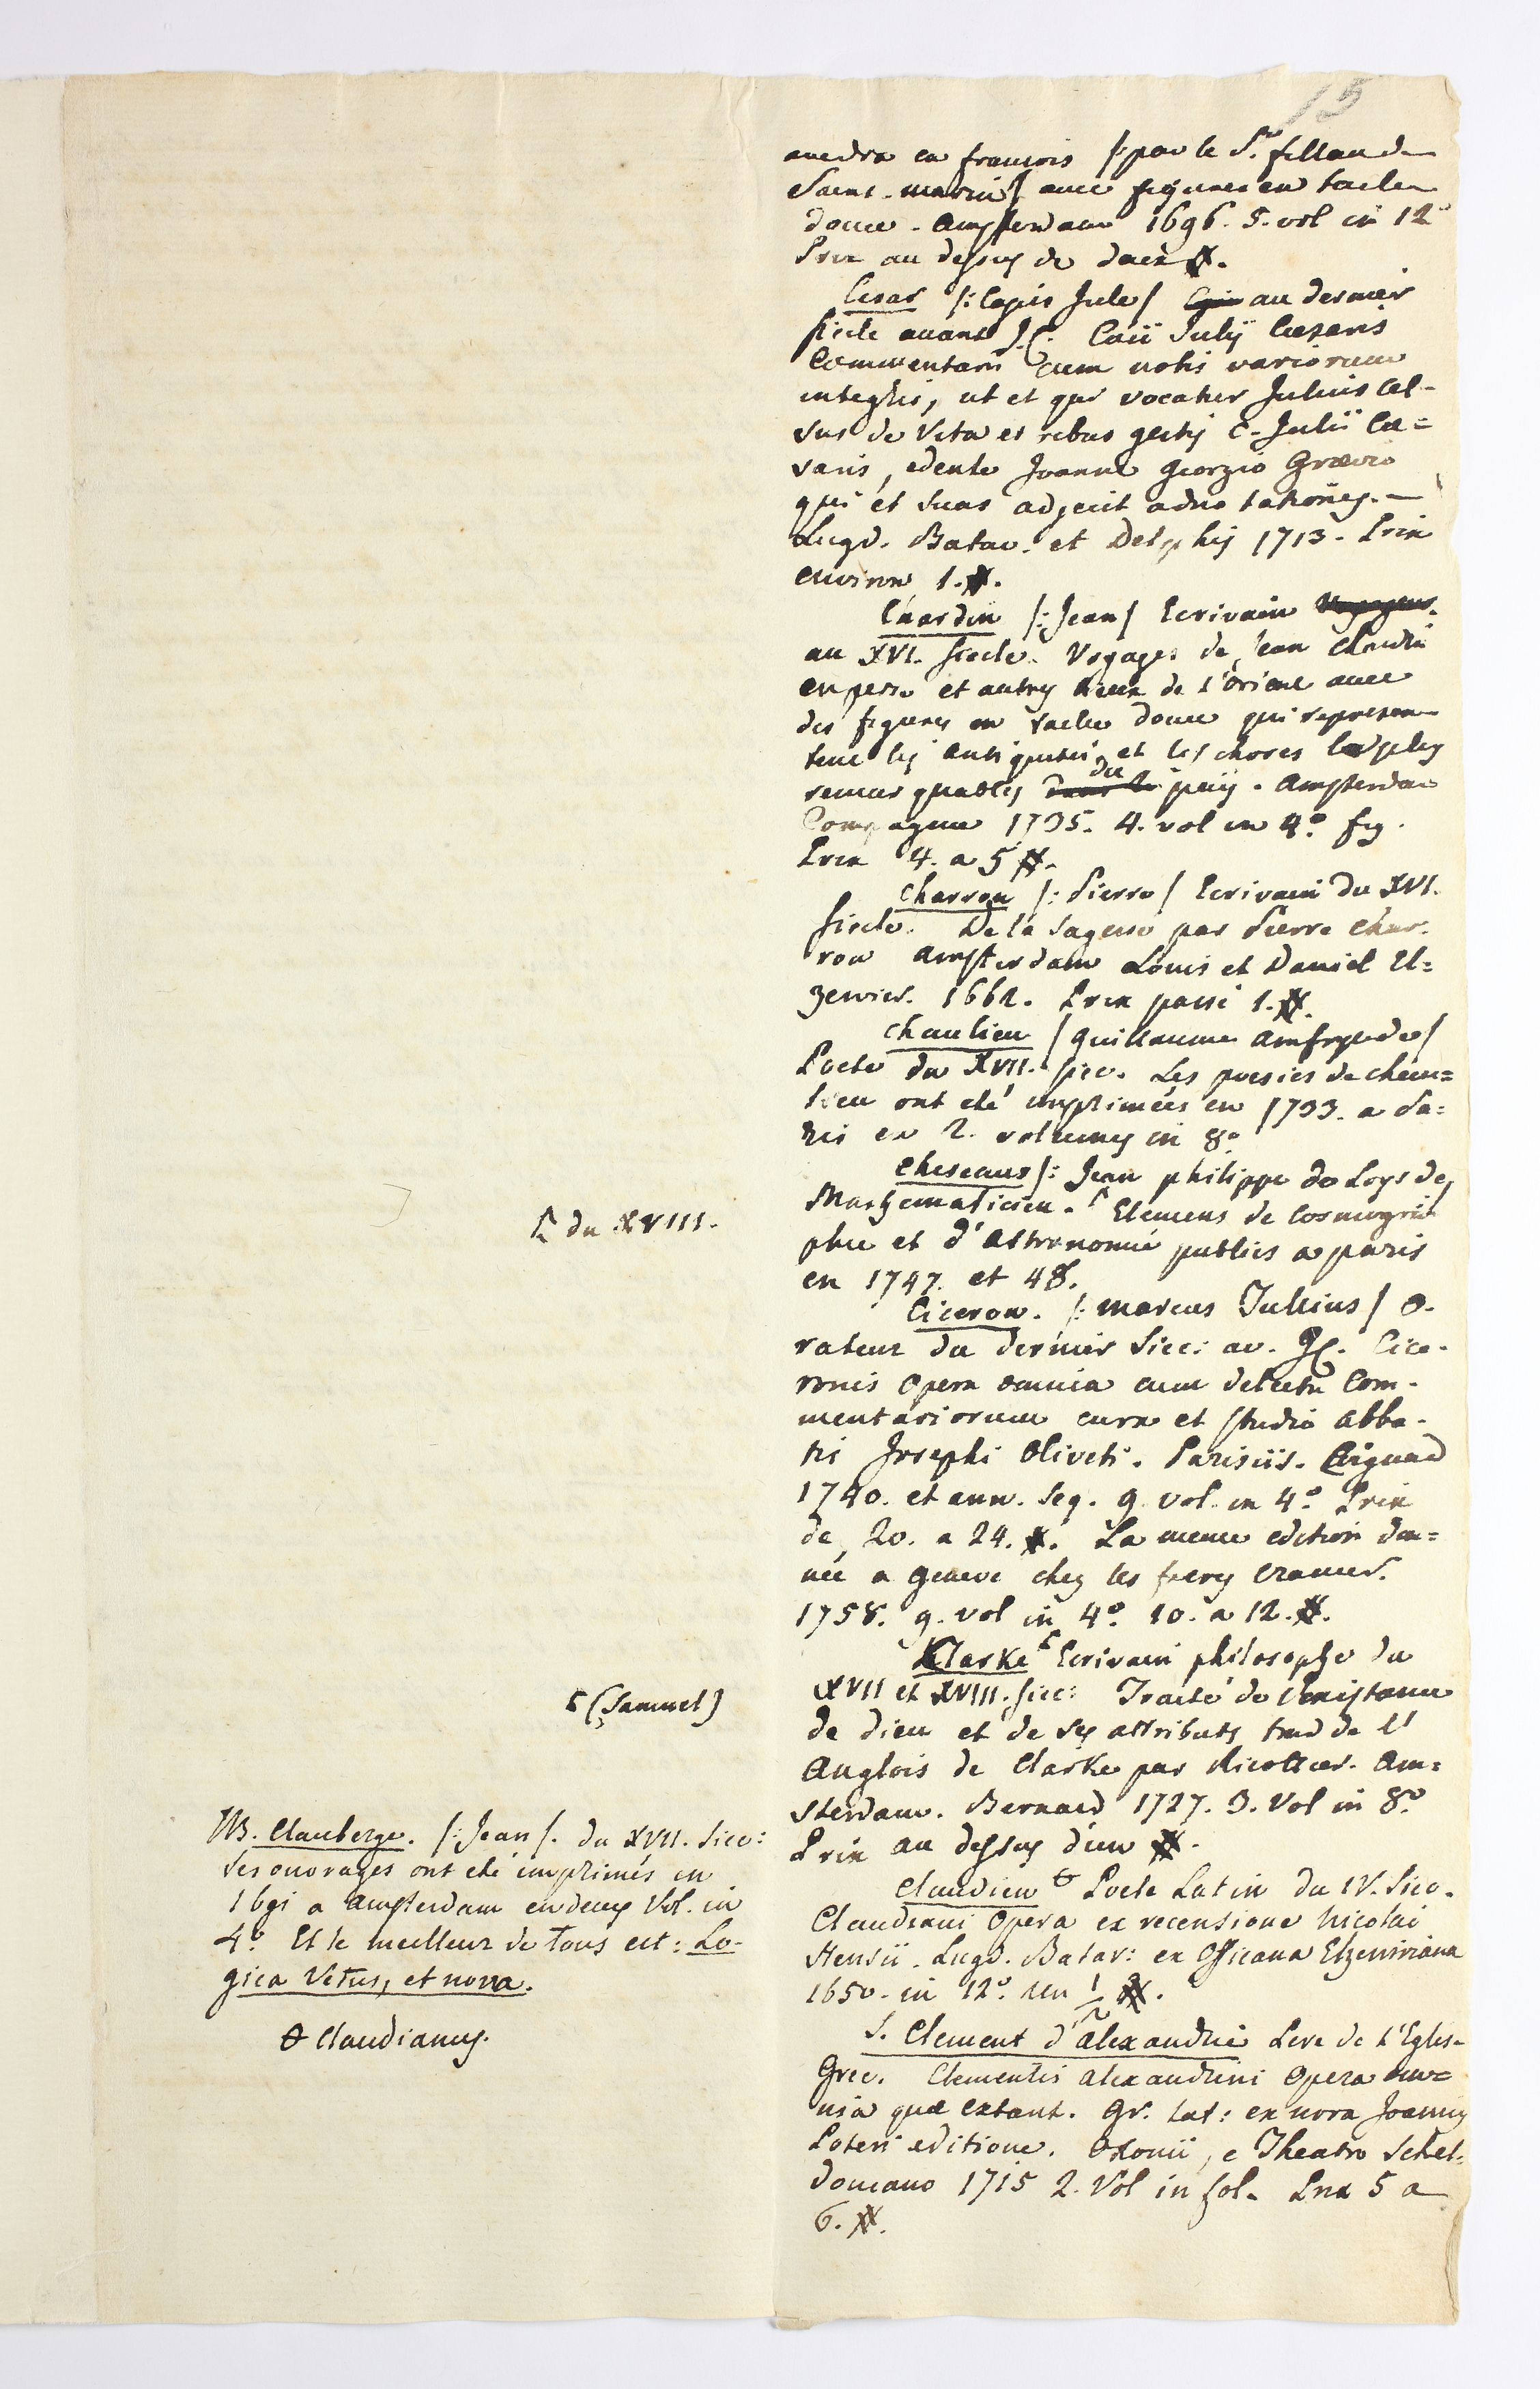 15
auedra en francois /: par le Sr. filleau de
Saint-martin / auec figures en taille
douce. Amsterdam 1696. 5. vol in 12º
Prix au dessus de deux #.
Cesar /: Cajus Jule / au dernier
siecle auant J.C. Caii Julij Caesaris
Commentarii cum notis variorum
integris, ut et qui vocatur Julius Cel-
sus de Vita et rebus gestis C. Julii Cae=
saris, edente Joanne Georgio Graevio
qui et suas adjecit adnotationes. —
Lugd. Batav. et Delphis 1713. Prix
environ 1. #.
Chardin /: Jean / Ecrivain Voyageur.
au XVI. siecle. Voyages de Jean Chardin
en perse et autres lieux de l'orient auec
des figures en taille douce qui represen-
tent les antiquités et les choses les plus
remarquables dans le du païs. Amsterdam
Compagnie 1735. 4. vol in 4º fig.
Prix 4. a 5 #.
Charron /: Pierre / Ecrivain du XVI.
siecle. De la Sagesse par Pierre Char-
ron Amsterdam Louis et Daniel El=
zevier. 1662. Prix passé 1. #.
Chaulieu / Guillaume Amfrye de /
Poete du XVII. siec. Les poesies de Chau=
lieu ont eté imprimées en 1733. a Pa=
ris en 2. volumes in 8º
Cheseaux /: Jean philippe de Loys de,
Mathematicien. Γ Elemens de Cosmogra-
phie et d'Astronomie publiés a paris
en 1747. et 48.
Γ du XVIII.
Ciceron. /: Marcus Tullius / O-
rateur du dernier Siec: av. J.C. Cice-
ronis Opera omnia cum delectu Com-
mentariorum cura et studio abba-
tis Josephi Oliveti. Parisiis. Coignard
1740. et ann. Seq. 9. vol. in 4º Prix
de 20. a 24. #. La meme edition don=
née a Geneve chez les freres Cramer.
1758. 9. vol in 4º 10. a 12. #.
Clarke 5 Ecrivain philosophe du
XVII et XVIII. siec: Traité de l'existance
de dieu et de ses attributs trad de l'
Anglois de Clarke par Ricottier. Am=
sterdam. Bernard 1727. 3. Vol in 8º
Prix au dessus d'un #.
5 (Samuel)
NB. Clauberge. /: Jean /. du XVII. Siec:
Ses ouvrages ont eté imprimés en
1691 a Amsterdam en deux Vol. in
4º Et le meilleur de Tous est: Lo-
gica Vetus, et nova.
Claudien θ Poete Latin du IV. Siec.
Claudiani Opera ex recensione Nicolai
Hensii. Lugd. Batav: ex Officana Elzeviriana
1650. in 12º un 1/2 #.
θ Claudianus.
S. Clement d'Alexandrie Pere de l'Eglise
Grec. Clementis Alexandrini Opera om=
nia quae extant. Gr. Lat: ex nova Joannis
Poteri editione. Oxonii, e Theatro Schel-
doniano 1715 2. Vol in fol. Prix 5 a
6. #.